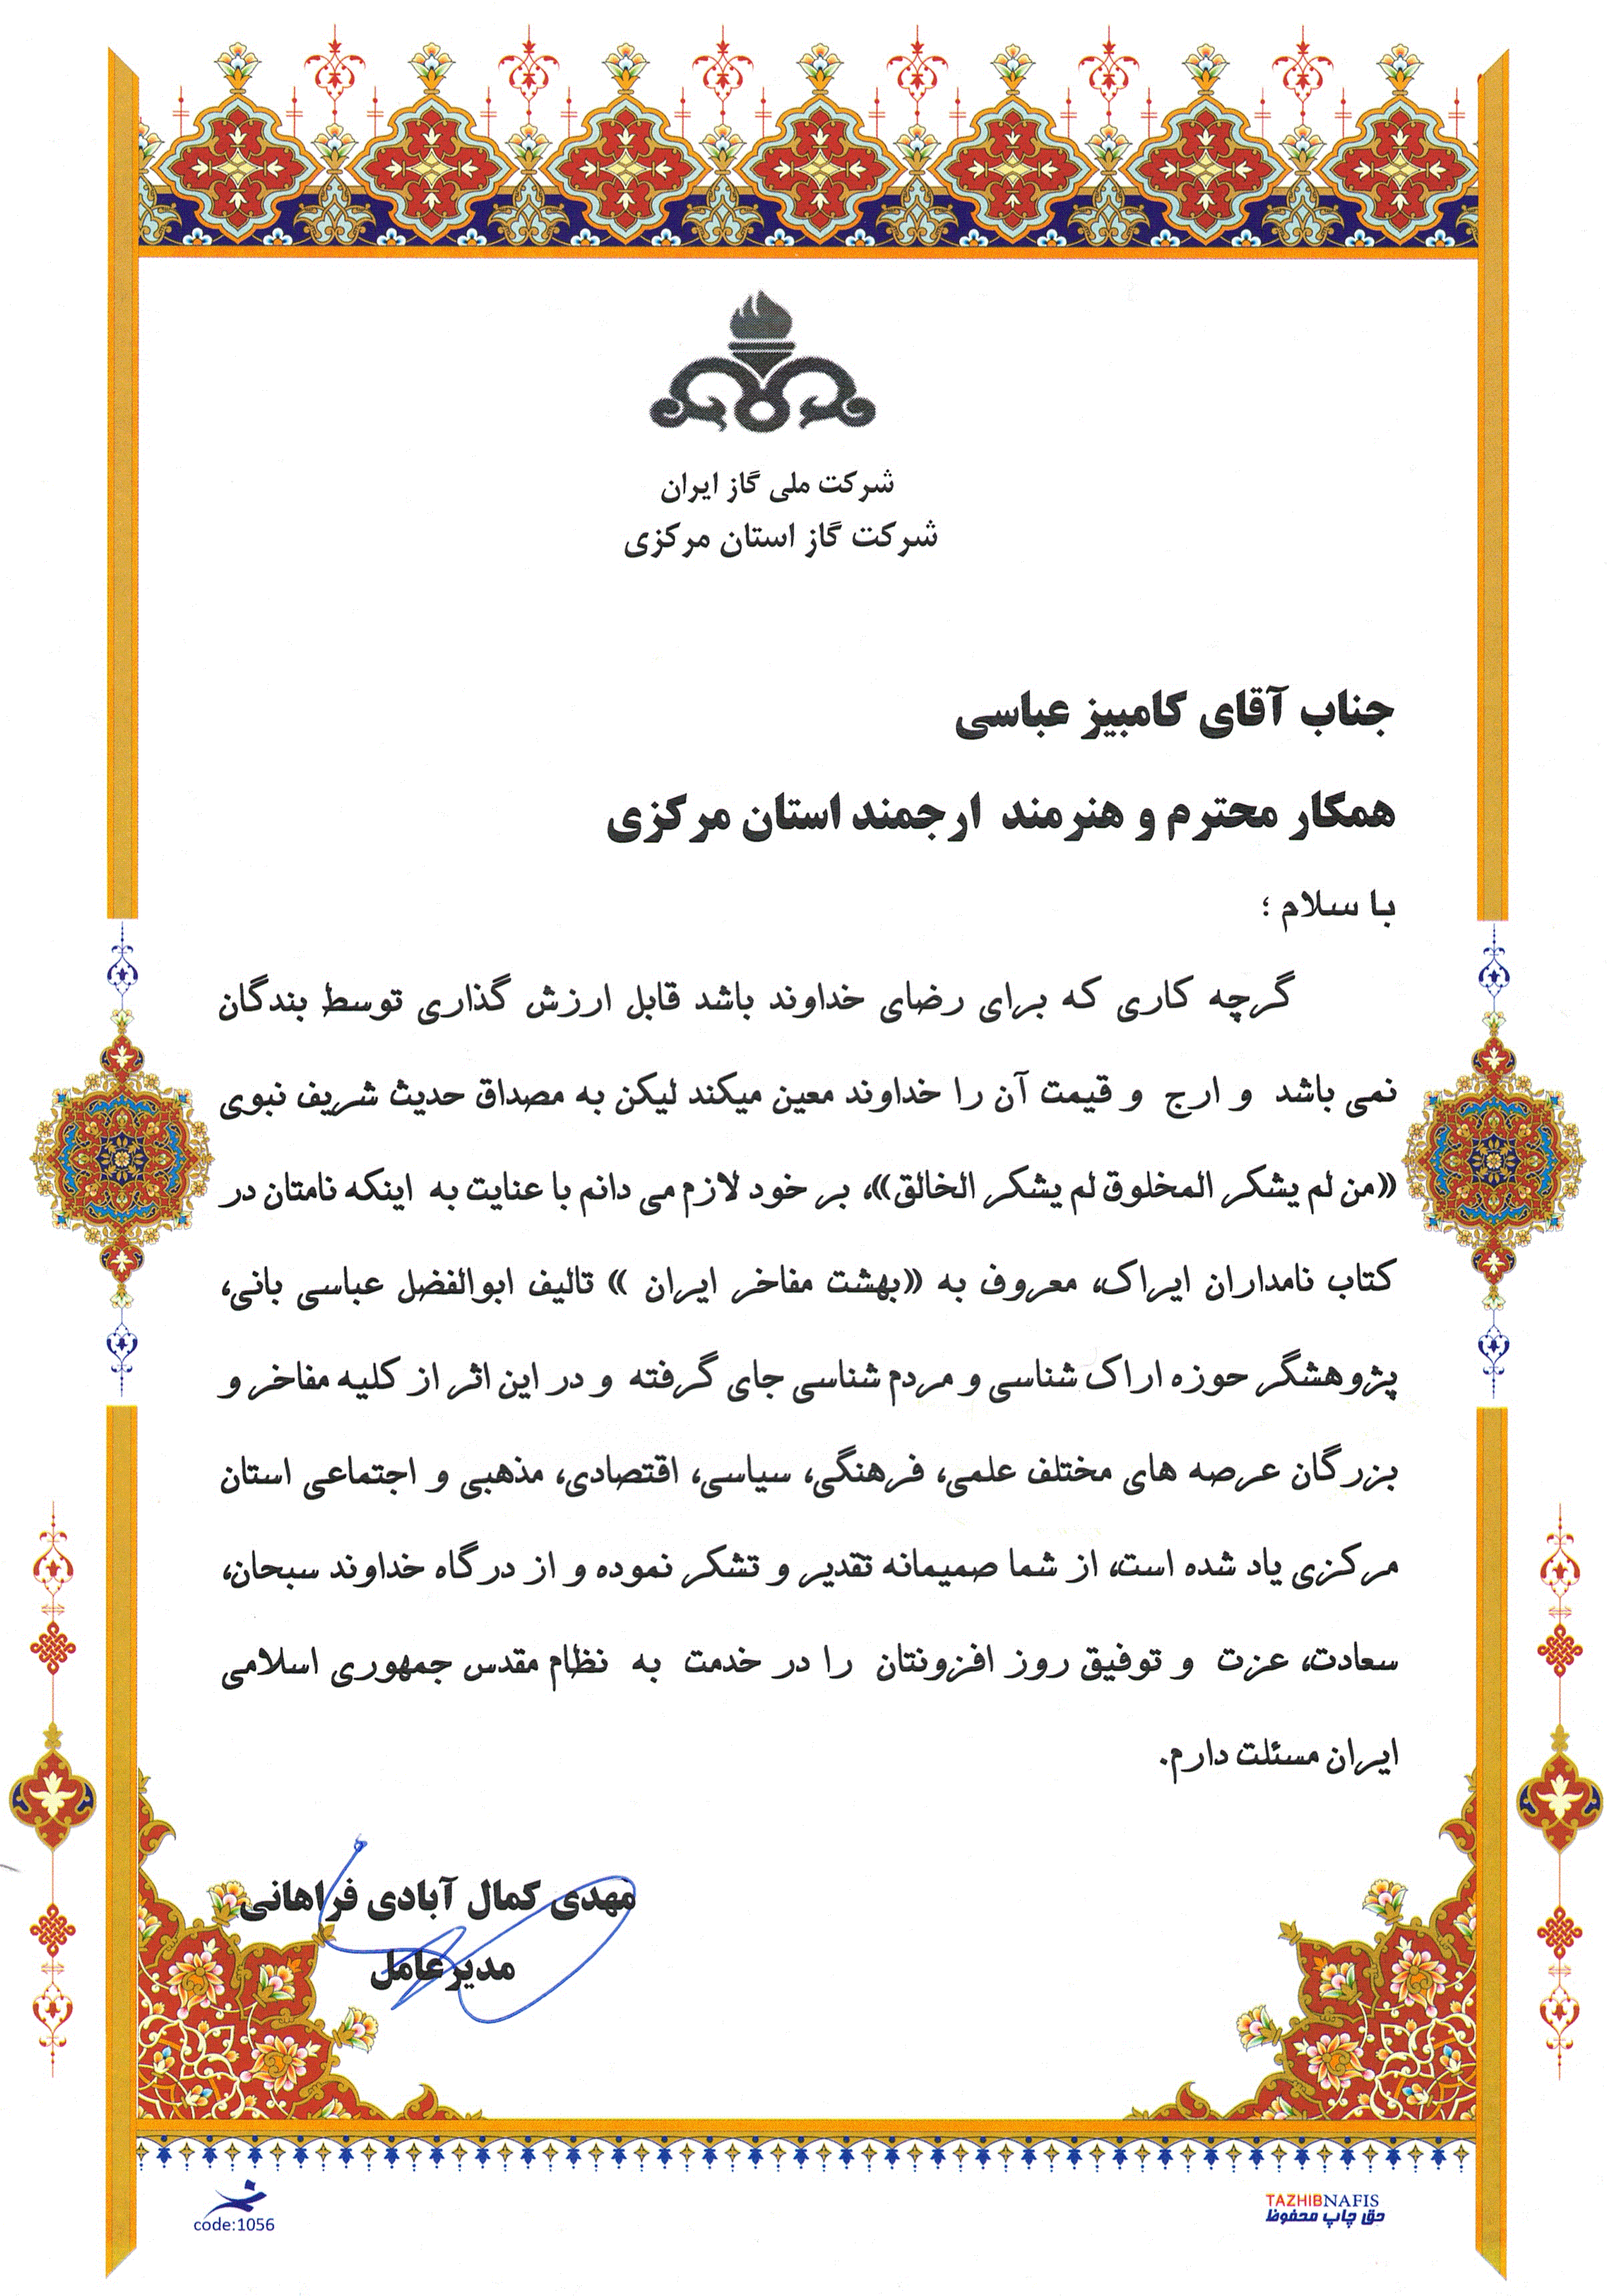 شرکت ملی گاز ایران
شرکت گاز استان مرکزی
جناب آقای کامبیز عباسی
همکار محترم و هنرمند ارجمند استان مرکزی
با سلام ؛
گرچه کاری که برای رضای خداوند باشد قابل ارزش گذاری توسط بندگان
نمی باشد و ارج و قیمت آن را خداوند معین میکند لیکن به مصداق حدیث شریف نبوی
«من لم یشکر المخلوق لم یشکر الخالق»، بر خود لازم می دانم با عنایت به اینکه نامتان در
کتاب نامداران ایراک، معروف به «بهشت مفاخر ایران » تالیف ابوالفضل عباسی بانی،
پژوهشگر حوزه اراک شناسی و مردم شناسی جای گرفته و در این اثر از کلیه مفاخر و
بزرگان عرصه های مختلف علمی، فرهنگی، سیاسی، اقتصادی، مذهبی و اجتماعی استان
مرکزی یاد شده است، از شما صمیمانه تقدیر و تشکر نموده و از درگاه خداوند سبحان،
سعادت، عزت و توفیق روز افزونتان را در خدمت به نظام مقدس جمهوری اسلامی
ایران مسئلت دارم.
مهدی کمال آبادی فراهانی
مدیرعامل
code:1056
TAZHIBNAFIS
حق چاپ محفوظ